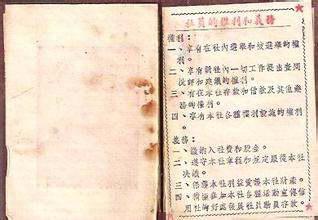 社員的權利和義務
權利:
一、享有在社內選舉和被選舉的權
利。
二、享有對社一切工作提出查問
批評和建議的權利。
三、有在本社存款和借款及其他業
務的權利。
四、享有本社各種權利設施的權利。
義務:
一、繳納入社費和股金。
二、遵守本社章程和社員大會本社
決議。
三、保護本社利益愛護本社財產。
四、積極參加本社各種活動宣傳信
用社的好處發展社員動員存款。